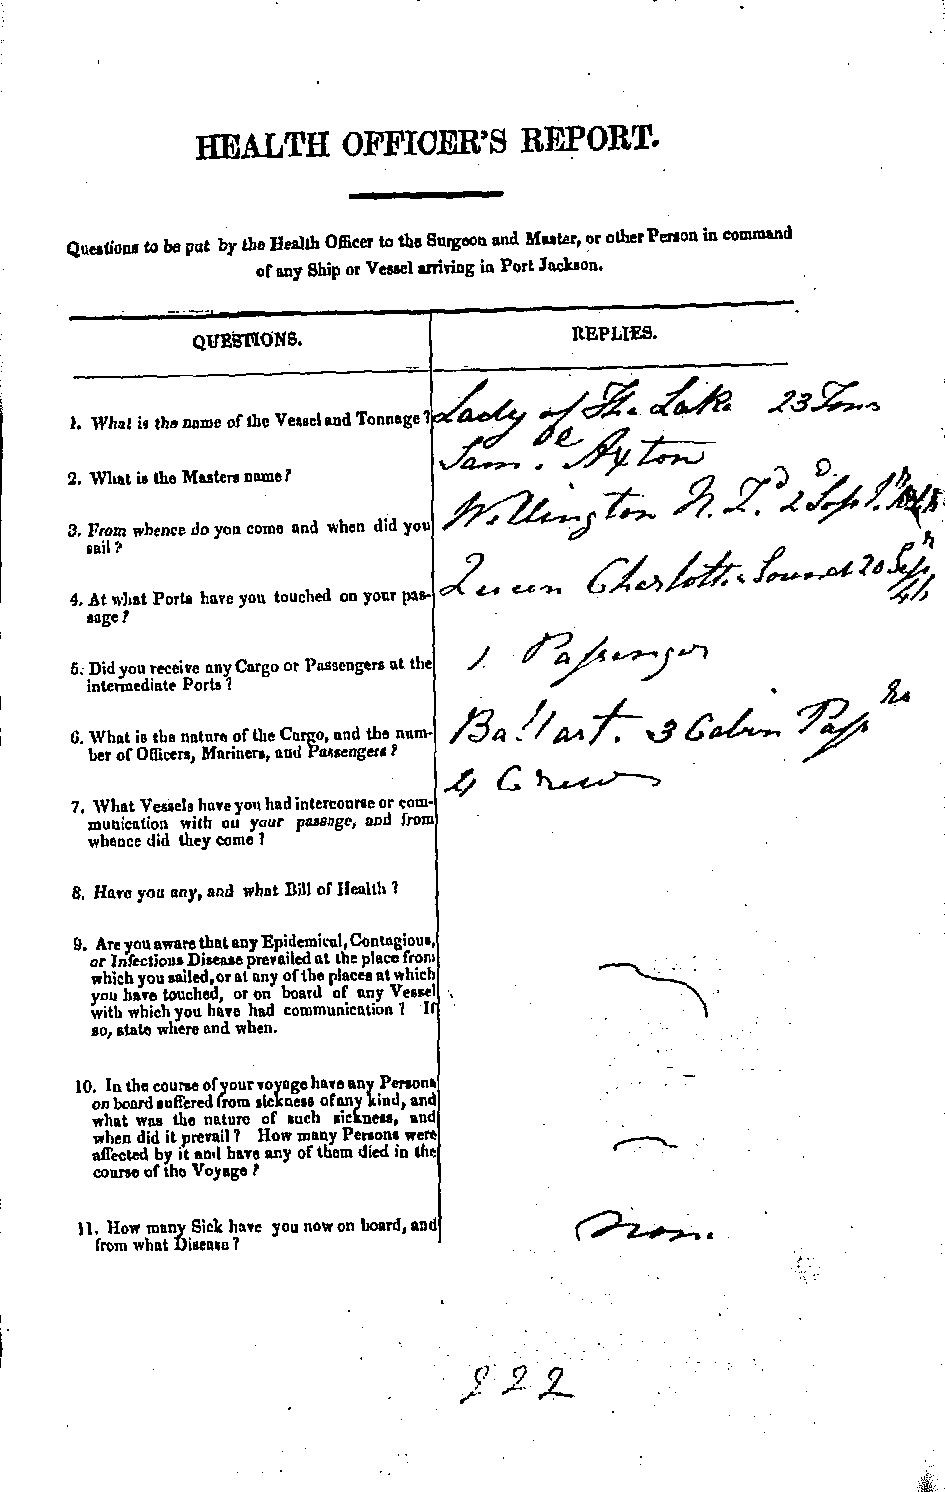 HEALTH OFFICER'S REPORT.
Questions to be put by the Health Officer to the Surgeon and Master, or other Person in command
of any Ship or Vessel arriving in Port Jackson.
QUESTIONS.
REPLIES.
1. What is the name of the Vessel and Tonnage?
Lady of The Lake 23 Tons
2. What is the Masters name?
Saml. Axton
3. From whence do you come and when did you
sail?
Wellington N. Zd. 2d Sepr.
4. At what Ports have you touched on your pas-
sage?
Queen Charlotte Sound 20 Sepr
41
5. Did you receive any Cargo or Passengers at the
intermediate Ports?
1 Passenger
6. What is the nature of the Cargo, and the num-
ber of Officers, Mariners, and Passengers?
Ballast. 3 Cabin Passrs
4 Crew
7. What Vessels have you had intercourse or com-
munication with on your passage, and from
whence did they come?
8. Have you any, and what Bill of Health?
9. Are you aware that any Epidemical, Contagious,
or Infectious Disease prevailed at the place from
which you sailed, or at any of the places at which
you have touched, or on board of any Vessel
with which you have had communication? If
so, state where and when.
10. In the course of your voyage have any Persons
on board suffered from sickness of any kind, and
what was the nature of such sickness, and
when did it prevail? How many Persons were
affected by it and have any of them died in the
course of the Voyage?
11. How many Sick have you now on board, and
from what Disease?
None
222